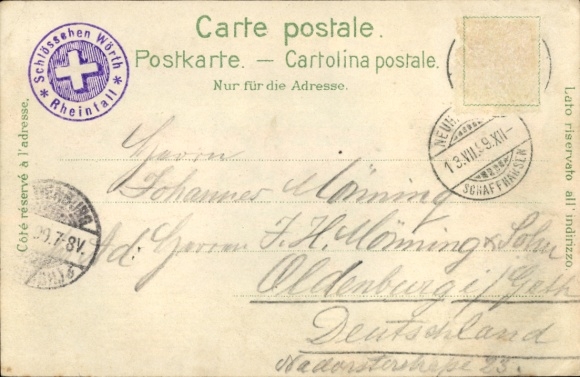 Carte postale.
Postkarte. — Cartolina postale.
Nur für die Adresse.
Schlösschen Wörth
* Rheinfall *
Côté réservé à l'adresse.
Lato riservato all' indirizzo.
NEUH
13.VII. 9.XII-
SCHAFFHAUSEN
Herrn
Johannes Mönning
Ad: Herren F. H. Mönning & Sohn
Oldenburg i/ Grth
Deutschland
Nadorsterstrasse 23.
7-8V.